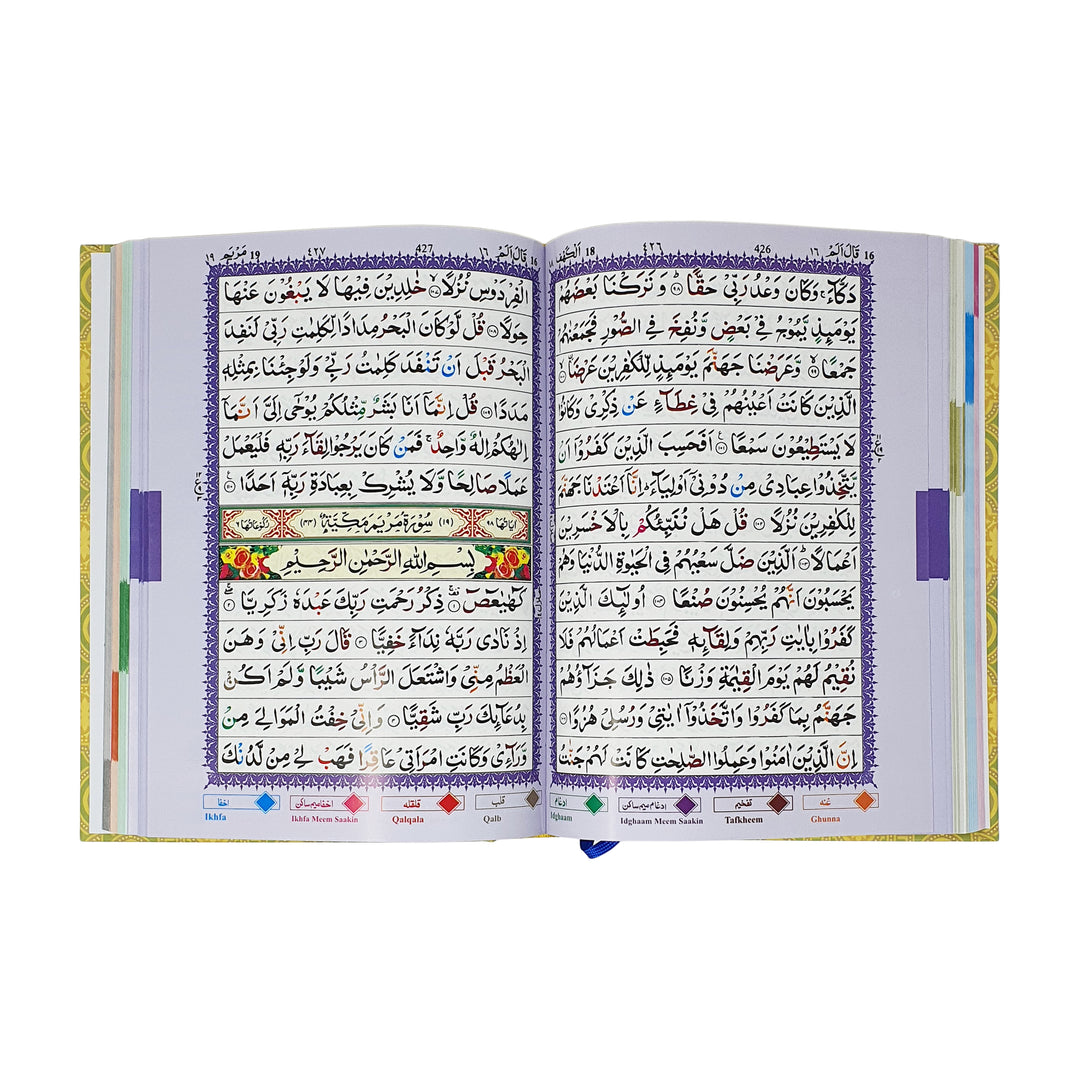 16 قَالَ اَلَمْ ١٦ 426 ٤٢٦ 18 اَلْكَهْف ١٨
دَكَّآءَ ۚ وَكَانَ وَعْدُ رَبِّىْ حَقًّا ؕ ﴿۹۸﴾ وَ تَرَكْنَا بَعْضَهُمْ
يَوْمَٮِٕذٍ يَّمُوْجُ فِىْ بَعْضٍ وَّنُفِخَ فِى الصُّوْرِ فَجَمَعْنٰهُمْ
جَمْعًا ۙ ﴿۹۹﴾ وَّعَرَضْنَا جَهَنَّمَ يَوْمَٮِٕذٍ لِّلْكٰفِرِيْنَ عَرْضَا ۙ ﴿۱۰۰﴾
الَّذِيْنَ كَانَتْ اَعْيُنُهُمْ فِىْ غِطَآءٍ عَنْ ذِكْرِىْ وَكَانُوْا
لَا يَسْتَطِيْعُوْنَ سَمْعًا ﴿۱۰۱﴾ اَفَحَسِبَ الَّذِيْنَ كَفَرُوْۤا اَنْ
يَّتَّخِذُوْا عِبَادِىْ مِنْ دُوْنِىْۤ اَوْلِيَآءَ ؕ اِنَّاۤ اَعْتَدْنَا جَهَنَّمَ
لِلْكٰفِرِيْنَ نُزُلًا ﴿۱۰۲﴾ قُلْ هَلْ نُنَبِّئُكُمْ بِالْاَخْسَرِيْنَ
اَعْمَالًا ؕ ﴿۱۰۳﴾ اَلَّذِيْنَ ضَلَّ سَعْيُهُمْ فِى الْحَيٰوةِ الدُّنْيَا وَهُمْ
يَحْسَبُوْنَ اَنَّهُمْ يُحْسِنُوْنَ صُنْعًا ﴿۱۰۴﴾ اُولٰٓٮِٕكَ الَّذِيْنَ
كَفَرُوْا بِاٰيٰتِ رَبِّهِمْ وَلِقَآٮِٕهٖ فَحَبِطَتْ اَعْمَالُهُمْ فَلَا
نُقِيْمُ لَهُمْ يَوْمَ الْقِيٰمَةِ وَزْنًا ﴿۱۰۵﴾ ذٰلِكَ جَزَآؤُهُمْ
جَهَنَّمُ بِمَا كَفَرُوْا وَاتَّخَذُوْۤا اٰيٰتِىْ وَرُسُلِىْ هُزُوًا ﴿۱۰۶﴾
اِنَّ الَّذِيْنَ اٰمَنُوْا وَعَمِلُوا الصّٰلِحٰتِ كَانَتْ لَهُمْ جَنّٰتُ
غنه تفخيم ادغام ميم ساكن ادغام
Ghunna Tafkheem Idghaam Meem Saakin Idghaam
16 قَالَ اَلَمْ ١٦ 427 ٤٢٧ 19 مَرْيَم ١٩
الْفِرْدَوْسِ نُزُلًا ۙ ﴿۱۰۷﴾ خٰلِدِيْنَ فِيْهَا لَا يَبْغُوْنَ عَنْهَا
حِوَلًا ﴿۱۰۸﴾ قُلْ لَّوْ كَانَ الْبَحْرُ مِدَادًا لِّكَلِمٰتِ رَبِّىْ لَنَفِدَ
الْبَحْرُ قَبْلَ اَنْ تَنْفَدَ كَلِمٰتُ رَبِّىْ وَلَوْ جِئْنَا بِمِثْلِهٖ
مَدَدًا ﴿۱۰۹﴾ قُلْ اِنَّمَاۤ اَنَا بَشَرٌ مِّثْلُكُمْ يُوْحٰٓى اِلَىَّ اَنَّمَاۤ
اِلٰهُكُمْ اِلٰهٌ وَّاحِدٌ ۚ فَمَنْ كَانَ يَرْجُوْا لِقَآءَ رَبِّهٖ فَلْيَعْمَلْ
عَمَلًا صَالِحًا وَّلَا يُشْرِكْ بِعِبَادَةِ رَبِّهٖۤ اَحَدًا ﴿۱۱۰﴾
اٰيَاتُهَا ٩٨ (١٩) سُوْرَةُ مَرْيَمَ مَكِّيَّةٌ (٤٤) رُكُوْعَاتُهَا ٦
بِسْمِ اللّٰهِ الرَّحْمٰنِ الرَّحِيْمِ
كٓهٰيٰعٓصٓ ﴿۱﴾ ذِكْرُ رَحْمَتِ رَبِّكَ عَبْدَهٗ زَكَرِيَّا ﴿۲﴾
اِذْ نَادٰى رَبَّهٗ نِدَآءً خَفِيًّا ﴿۳﴾ قَالَ رَبِّ اِنِّىْ وَهَنَ
الْعَظْمُ مِنِّىْ وَاشْتَعَلَ الرَّاْسُ شَيْبًا وَّلَمْ اَكُنْۢ
بِدُعَآٮِٕكَ رَبِّ شَقِيًّا ﴿۴﴾ وَاِنِّىْ خِفْتُ الْمَوَالِىَ مِنْ
وَّرَآءِىْ وَكَانَتِ امْرَاَتِىْ عَاقِرًا فَهَبْ لِىْ مِنْ لَّدُنْكَ
قلب قلقله اخفا ميم ساكن اخفا
Qalb Qalqala Ikhfa Meem Saakin Ikhfa